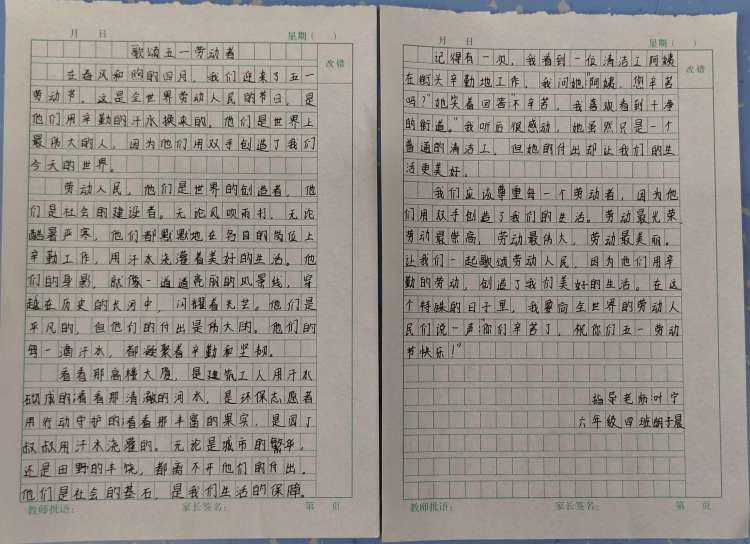 月 日 星期（ ）
改错
歌颂五一劳动者
在春风和煦的四月，我们迎来了五一
劳动节。这是全世界劳动人民的节日，是
他们用辛勤的汗水换来的。他们是世界上
最伟大的人，因为他们用双手创造了我们
今天的世界。
劳动人民，他们是世界的创造者，他
们是社会的建设者。无论风吹雨打，无论
酷暑严寒，他们都默默地在各自的岗位上
辛勤工作，用汗水浇灌着美好的生活。他
们的身影，就像一道道亮丽的风景线，穿
越在历史的长河中，闪耀着光芒。他们是
平凡的，但他们的付出是伟大的。他们的
每一滴汗水，都凝聚着辛勤和坚韧。
看看那高楼大厦，是建筑工人用汗水
砌成的；看看那清澈的河水，是环保志愿者
用行动守护的；看看那丰富的果实，是园丁
叔叔用汗水浇灌的。无论是城市的繁华，
还是田野的丰饶，都离不开他们的付出。
他们是社会的基石，是我们生活的保障。
教师批语： 家长签名： 第 页
月 日 星期（ ）
改错
记得有一次，我看到一位清洁工阿姨
在街头辛勤地工作，我问她"阿姨，您辛苦
吗？"她笑着回答"不辛苦，我喜欢看到干净
的街道。"我听后很感动，她虽然只是一个
普通的清洁工，但她的付出却让我们的生
活更美好。
我们应该尊重每一个劳动者，因为他
们用双手创造了我们的生活。劳动最光荣，
劳动最崇高，劳动最伟大，劳动最美丽。
让我们一起歌颂劳动人民，因为他们用辛
勤的劳动，创造了我们美好的生活。在这
个特殊的日子里，我要向全世界的劳动人
民们说一声"你们辛苦了，祝你们五一劳动
节快乐！"
指导老师叶宁
六年级四班胡子晨
教师批语： 家长签名： 第 页